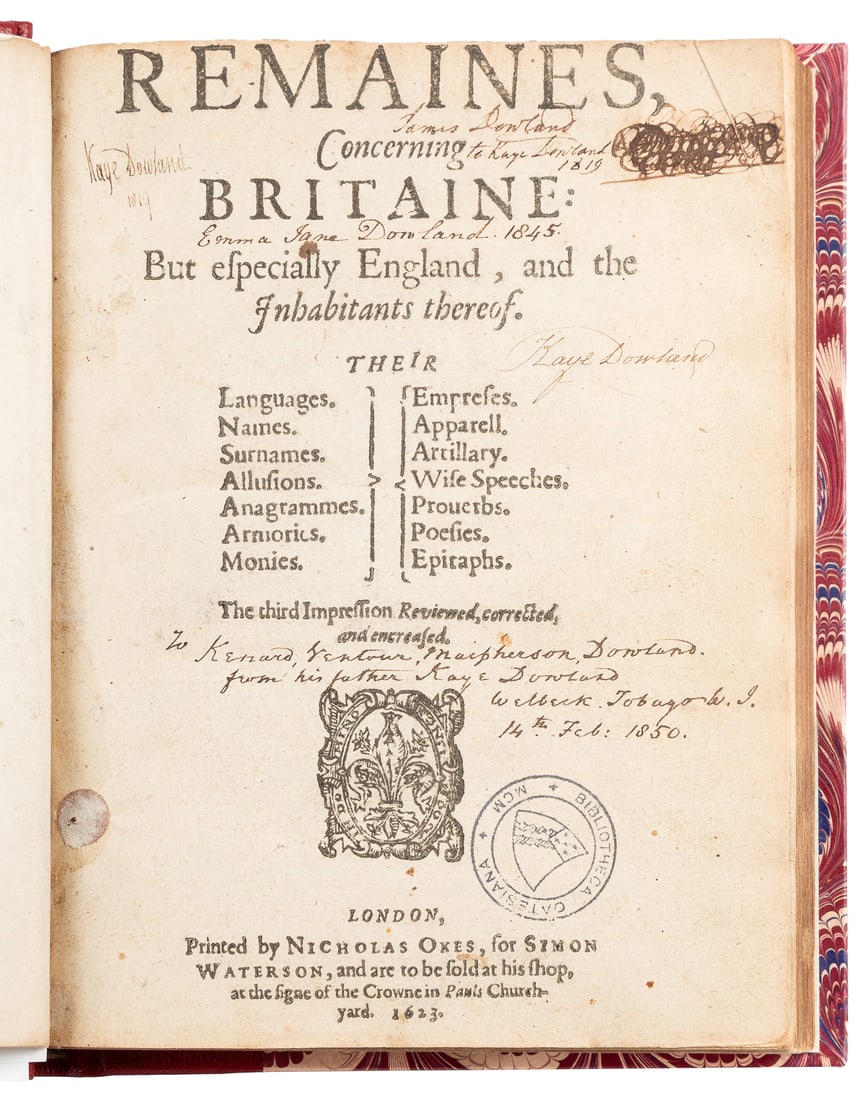 REMAINES,
James Dowland
Concerning
to Kaye Dowland
1819
Kaye Dowland
1819
BRITAINE:
Emma Jane Dowland. 1845.
But eſpecially England, and the
Inhabitants thereof.
THEIR
Kaye Dowland
Languages.
Names.
Surnames.
Alluſions.
Anagrammes.
Armories.
Monies.
Empreſes.
Apparell.
Artillary.
Wiſe Speeches.
Prouerbs.
Poeſies.
Epitaphs.
The third Impreſſion Reviewed, corrected,
and encreaſed.
To Kenard, Ventour, Macpherson, Dowland.
from his father Kaye Dowland
Welbeck. Tobago W. I.
14th Feb: 1850.
BIBLIOTHECA CATESIANA + MCM +
LONDON,
Printed by NICHOLAS OKES, for SIMON
WATERSON, and are to be ſold at his ſhop,
at the ſigne of the Crowne in Pauls Church-
yard. 1623.